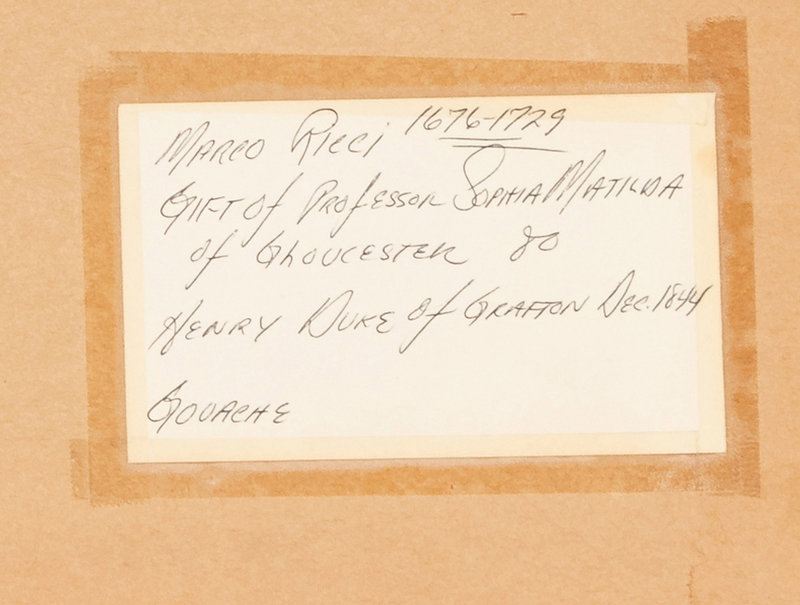 Marco Ricci 1676-1729
Gift of Professor Sophia Matilda
of Gloucester to
Henry Duke of Grafton Dec. 1844
Gouache